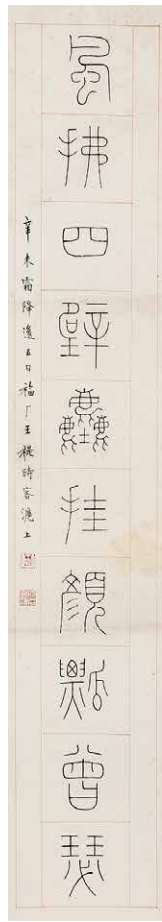 風拂四壁塵挂顏瓢曾瑟
辛未霜降後五日福厂王禔時客滬上